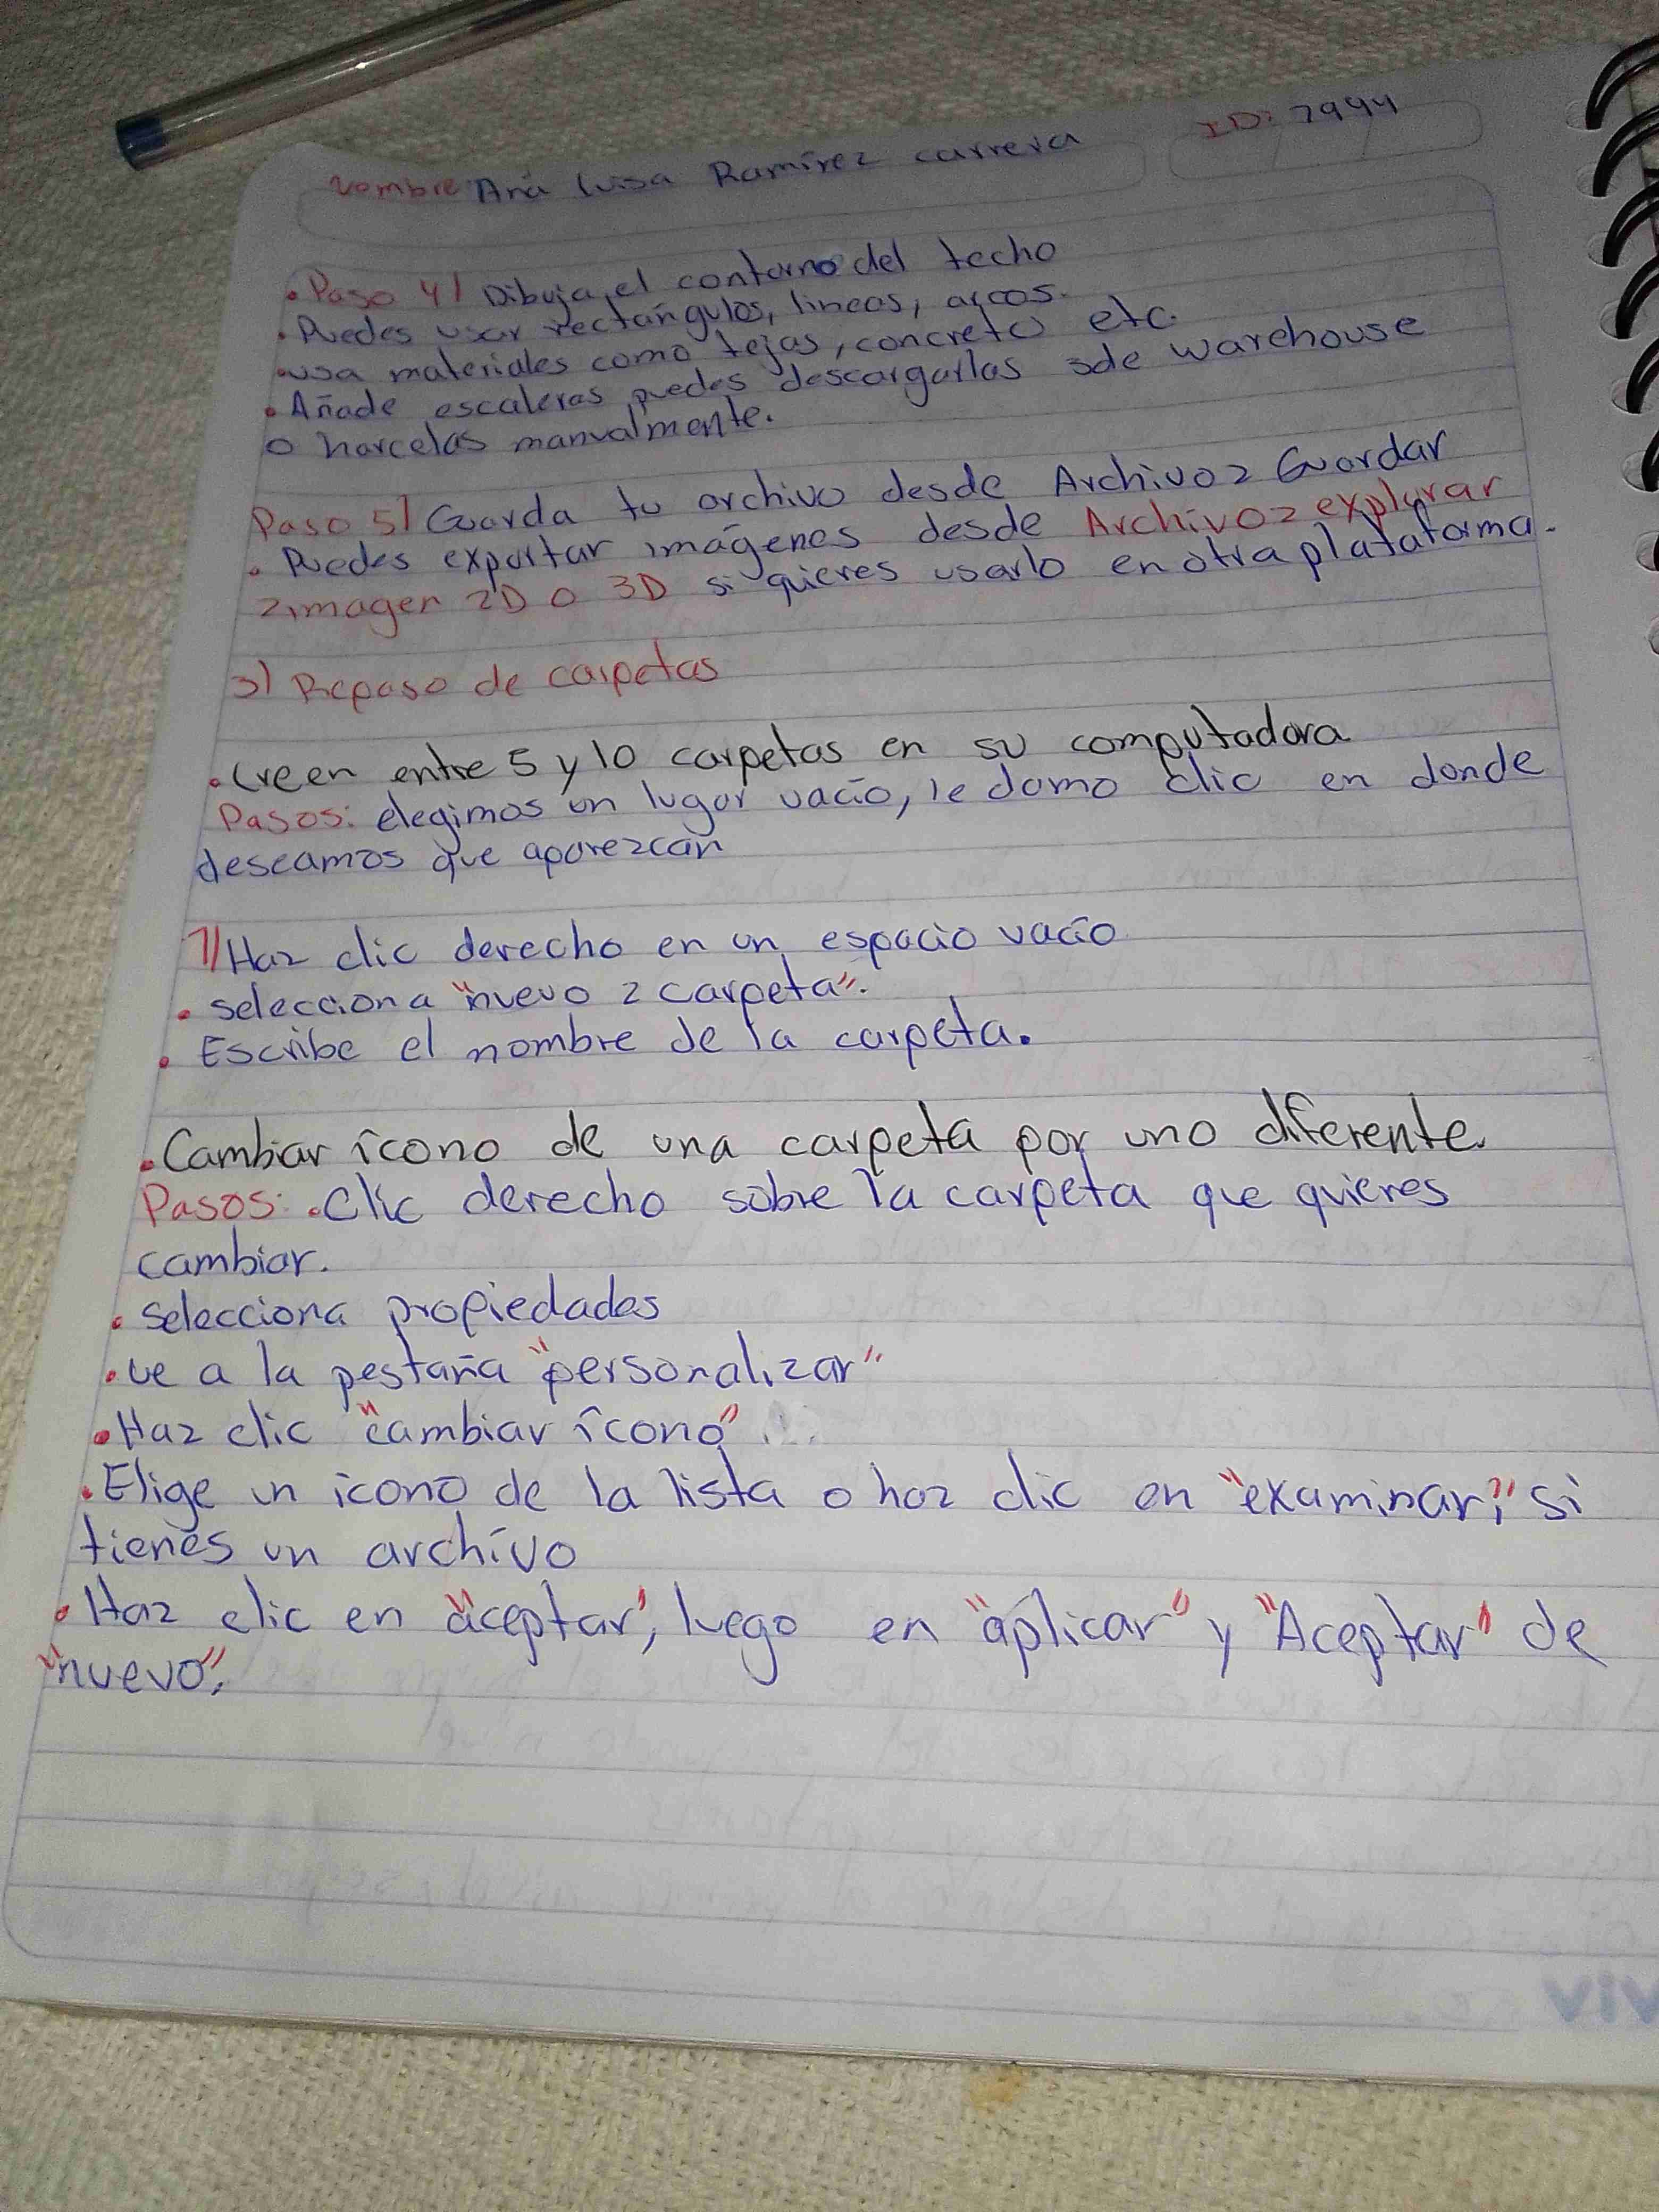 Nombre: Ana Luisa Ramírez carrera ID: 7994
• Paso 4) Dibuja el contorno del techo
• Puedes usar rectángulos, lineas, arcos.
• usa materiales como tejas, concreto etc.
• Añade escaleras puedes descargarlas 3de warehouse
o harcelas manualmente.
Paso 5) Guarda tu archivo desde Archivo > Guardar
• Puedes exportar imágenes desde Archivo > explurar
> imagen 2D o 3D si quieres usarlo en otra plataforma.
3) Repaso de carpetas
• Creen entre 5 y 10 carpetas en su computadora
Pasos: elegimos un lugar vacío, le damo clic en donde
deseamos que aparezcan
1) Haz clic derecho en un espacio vacío
• selecciona "nuevo > carpeta".
• Escribe el nombre de la carpeta.
• Cambiar ícono de una carpeta por uno diferente.
Pasos: • Clic derecho sobre la carpeta que quieres
cambiar.
• selecciona propiedades
• ve a la pestaña "personalizar"
• Haz clic "cambiar ícono"
• Elige un icono de la lista o haz clic en "examinar", si
tienes un archivo
• Haz clic en "aceptar", luego en "aplicar" y "Aceptar" de
"nuevo".